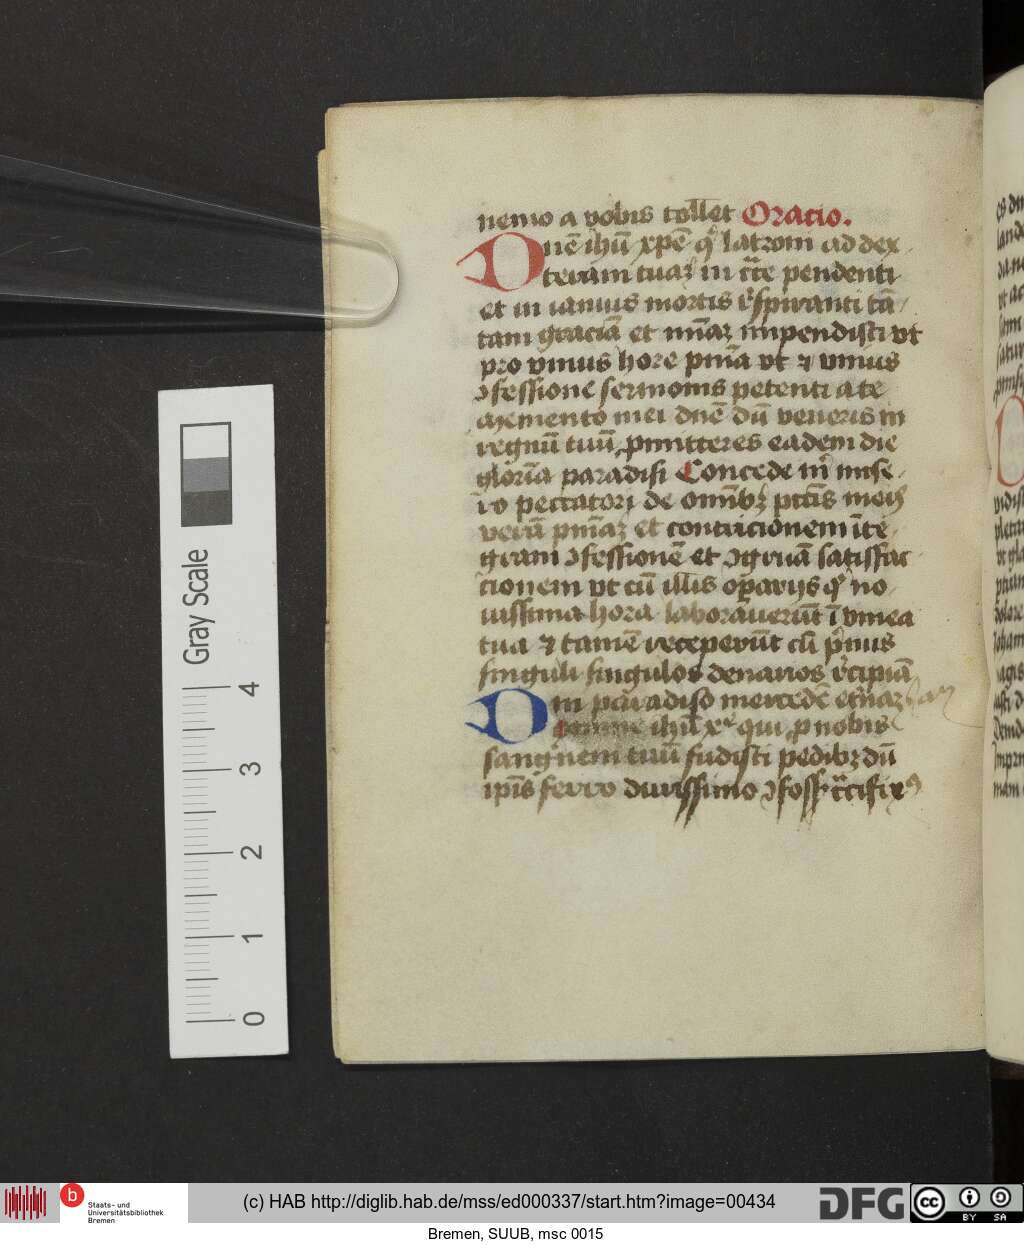 nemo a vobis tollet Oracio.
Dnē ihū xpē qͥ latroni ad dex
teram tuaꝫ in cͬce pendenti
et in ianuis mortis exspiranti tā
tam graciā et mīaꝫ impendisti vt
pro vnius hore pnīa vt ⁊ vnius
ɔfessione sermonis petenti a te
memento mei dnē dū veneris in
regnū tuū ꝓmitteres eadem die
gloriā paradisi Concede mͥ mise
ro peccatori de omībꝫ pctīs meis
verā pnīaꝫ et contricionem īte
gram ɔfessionē et ɔgruā satisfac
tionem vt cū illis operarijs qͥ no
uissima hora laborauerūt ī vinea
tua ⁊ tamē receperūt cū pͥmis
singuli singulos denarios recipiā
in paradiso mercedē etͥnaꝫ
Domine ihū xͤ qui ꝓ nobis
sangͥnem tuū fudisti pedibꝫ dū
ipīs ferro durissimo ɔfoss
es dn
0 1 2 3 4
Gray Scale
b
Staats- und
Universitätsbibliothek
Bremen
(c) HAB http://diglib.hab.de/mss/ed000337/start.htm?image=00434
DFG
cc BY SA
Bremen, SUUB, msc 0015